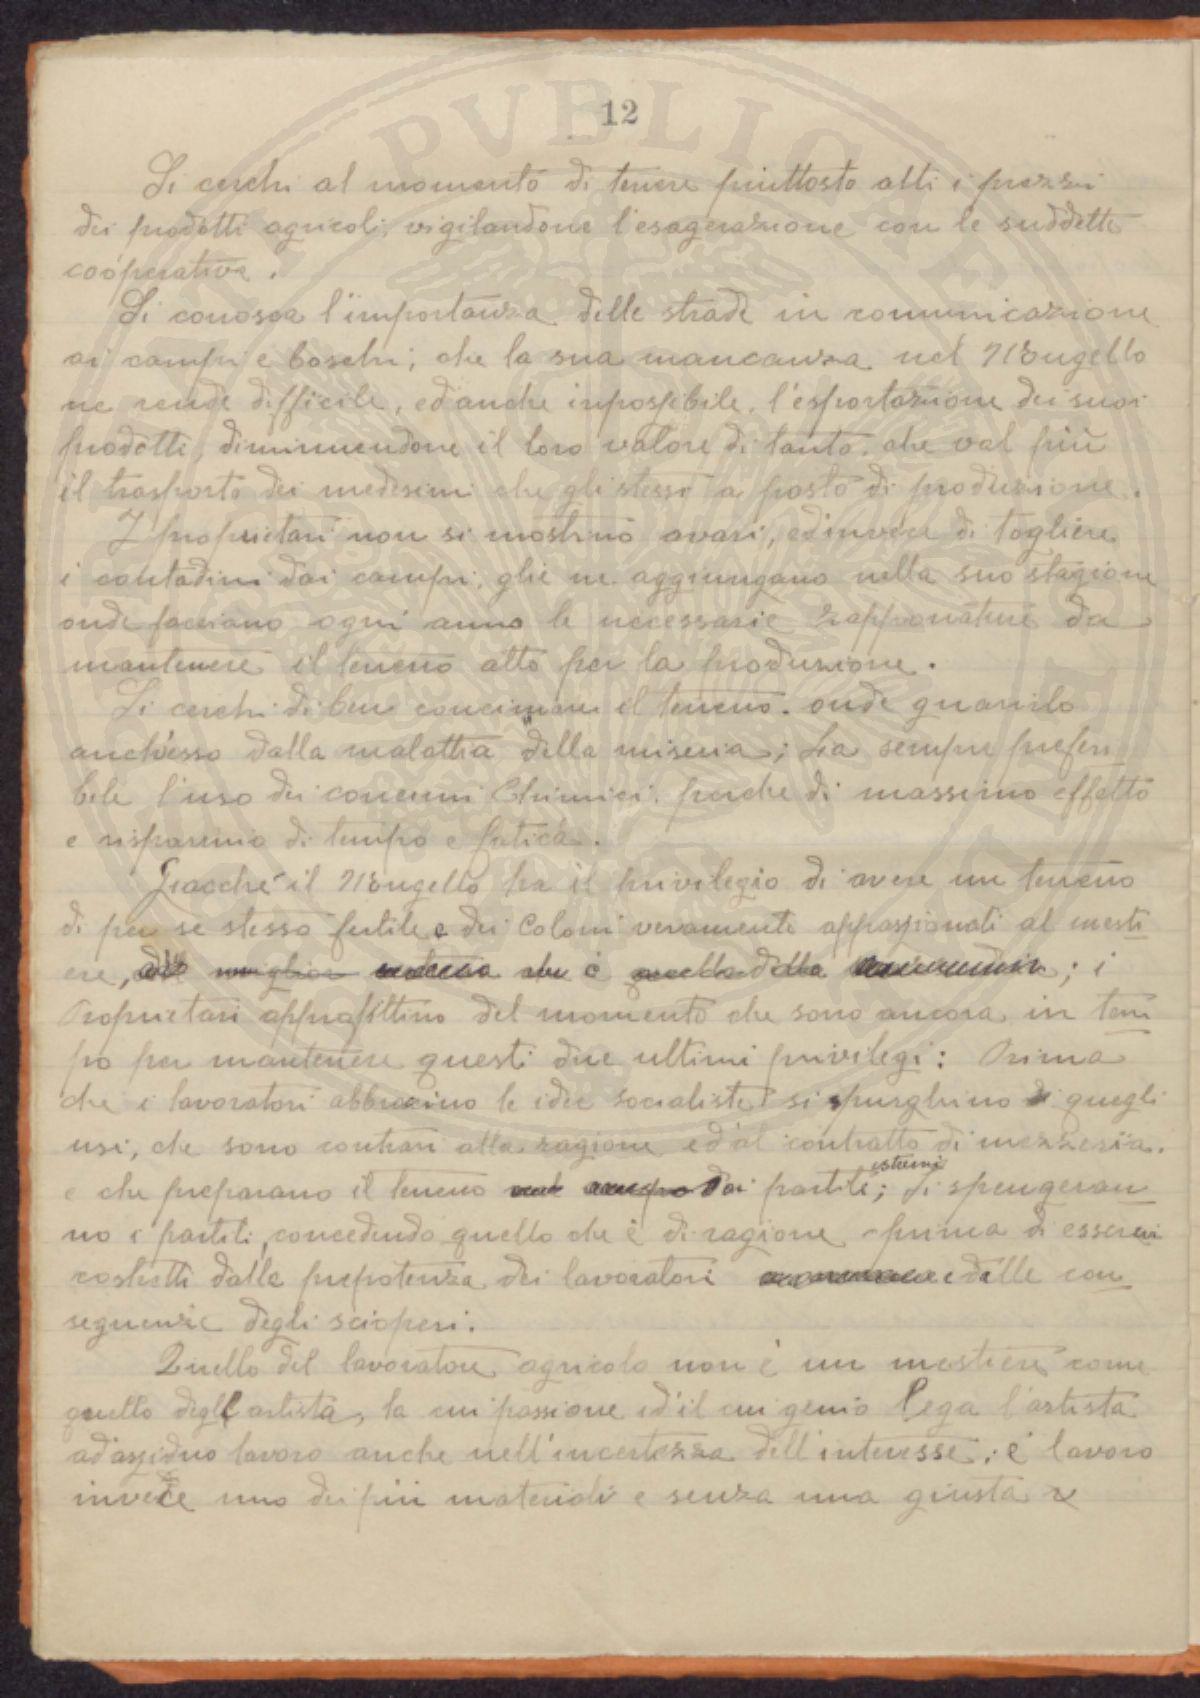 12
Si cerchi al momento di tenere piuttosto alti i prezzi
dei prodotti agricoli, vigilandone l'esagerazione con le suddette
cooperative.
Si conosca l'importanza delle strade in comunicazione
ai campi e boschi; che la sua mancanza nel Mugello
ne rende difficile, ed'anche inpossibile, l'esportazione dei suoi
prodotti, diminuendone il loro valore di tanto, che val più
il trasporto dei medesimi che gli stessi a posto di produzione.
I proprietari non si mostrino avari, ed'invece di togliere
i contadini dai campi, glie ne aggiungano nella suo stagione
onde facciano ogni anno le necessarie da
mantenere il terreno atto per la produzione.
Si cerchi di ben concimare il terreno, onde guarirlo
anch'esso dalla malattia della miseria; Sia sempre preferi
bile l'uso dei concimi Chimici, perche di massimo effetto
e risparmio di tempo e fatica.
Giacché il Mugello ha il privilegio di avere un terreno
di per se stesso fertile e dei Coloni veramente appassionati al mesti
ere, che è quella della ; i
Proprietari approfittino del momento che sono ancora in tem
po per mantenere questi due ultimi privilegi: Prima
che i lavoratori abbraccino le idee socialiste si spurghino di quegli
usi, che sono contrari alla ragione ed'al contratto di mezzeria,
e che preparano il terreno dai partiti estremi; Si spengeran
no i partiti, concedendo quello che è di ragione prima di esserci
costretti dalla prepotenza dei lavoratori e dalle con
seguenze degli scioperi.
Quello del lavoratore agricolo non è un mestiere come
quello degl'artista, la cui passione ed'il cui genio lega l'artista
ad'assiduo lavoro anche nell'incertezza dell'interesse; è lavoro
invece uno dei più materiali e senza una giusta